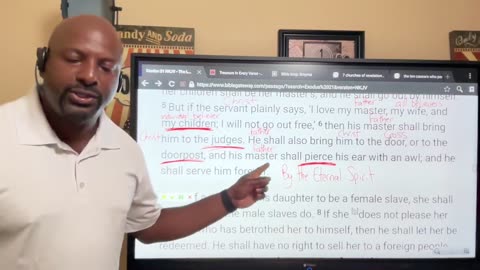 Soda
Exodus 21 NKJV - The L
Treasure In Every Verse
Bible Song: Enigma
7 churches of revelation
the two causins who ga
https://www.biblegateway.com/passage/?search=Exodus%2021&version=NKJV
her children shall be her master's, and he shall go out by himself.
Christ father all believers
5 But if the servant plainly says, 'I love my master, my wife, and
individual believer
my children; I will not go out free,' 6 then his master shall bring
Christ father Christ Cross
him to the judges. He shall also bring him to the door, or to the
father
doorpost, and his master shall pierce his ear with an awl; and he
shall serve him forev By the Eternal Spirit
f a his daughter to be a female slave, she shall
the male slaves do. 8 If she does not please her
who has betrothed her to himself, then he shall let her be
redeemed. He shall have no right to sell her to a foreign people,